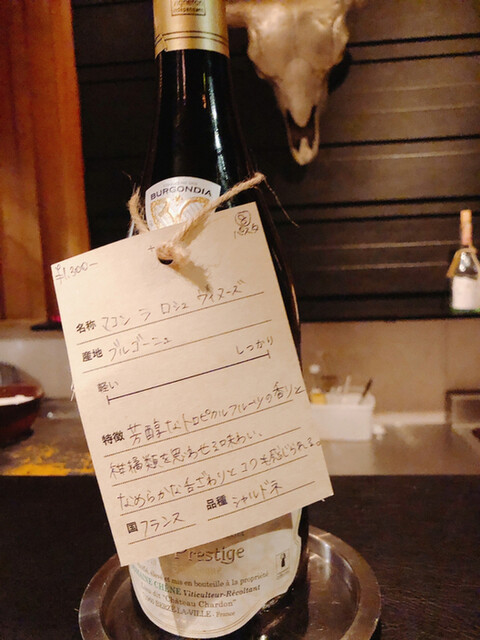 BURGONDIA
¥1,300-
名称 マコン ラ ロシュ ヴィヌーズ
産地 ブルゴーニュ
軽い しっかり
特徴 芳醇なトロピカルフルーツの香りと
柑橘類を思わせる味わい、
なめらかな舌ざわりとコクも感じられる。
国 フランス 品種 シャルドネ
Prestige
et mis en bouteille à la propriété
CHENE Viticulteur-Récoltant
"Château Chardon"
LA-VILLE - France